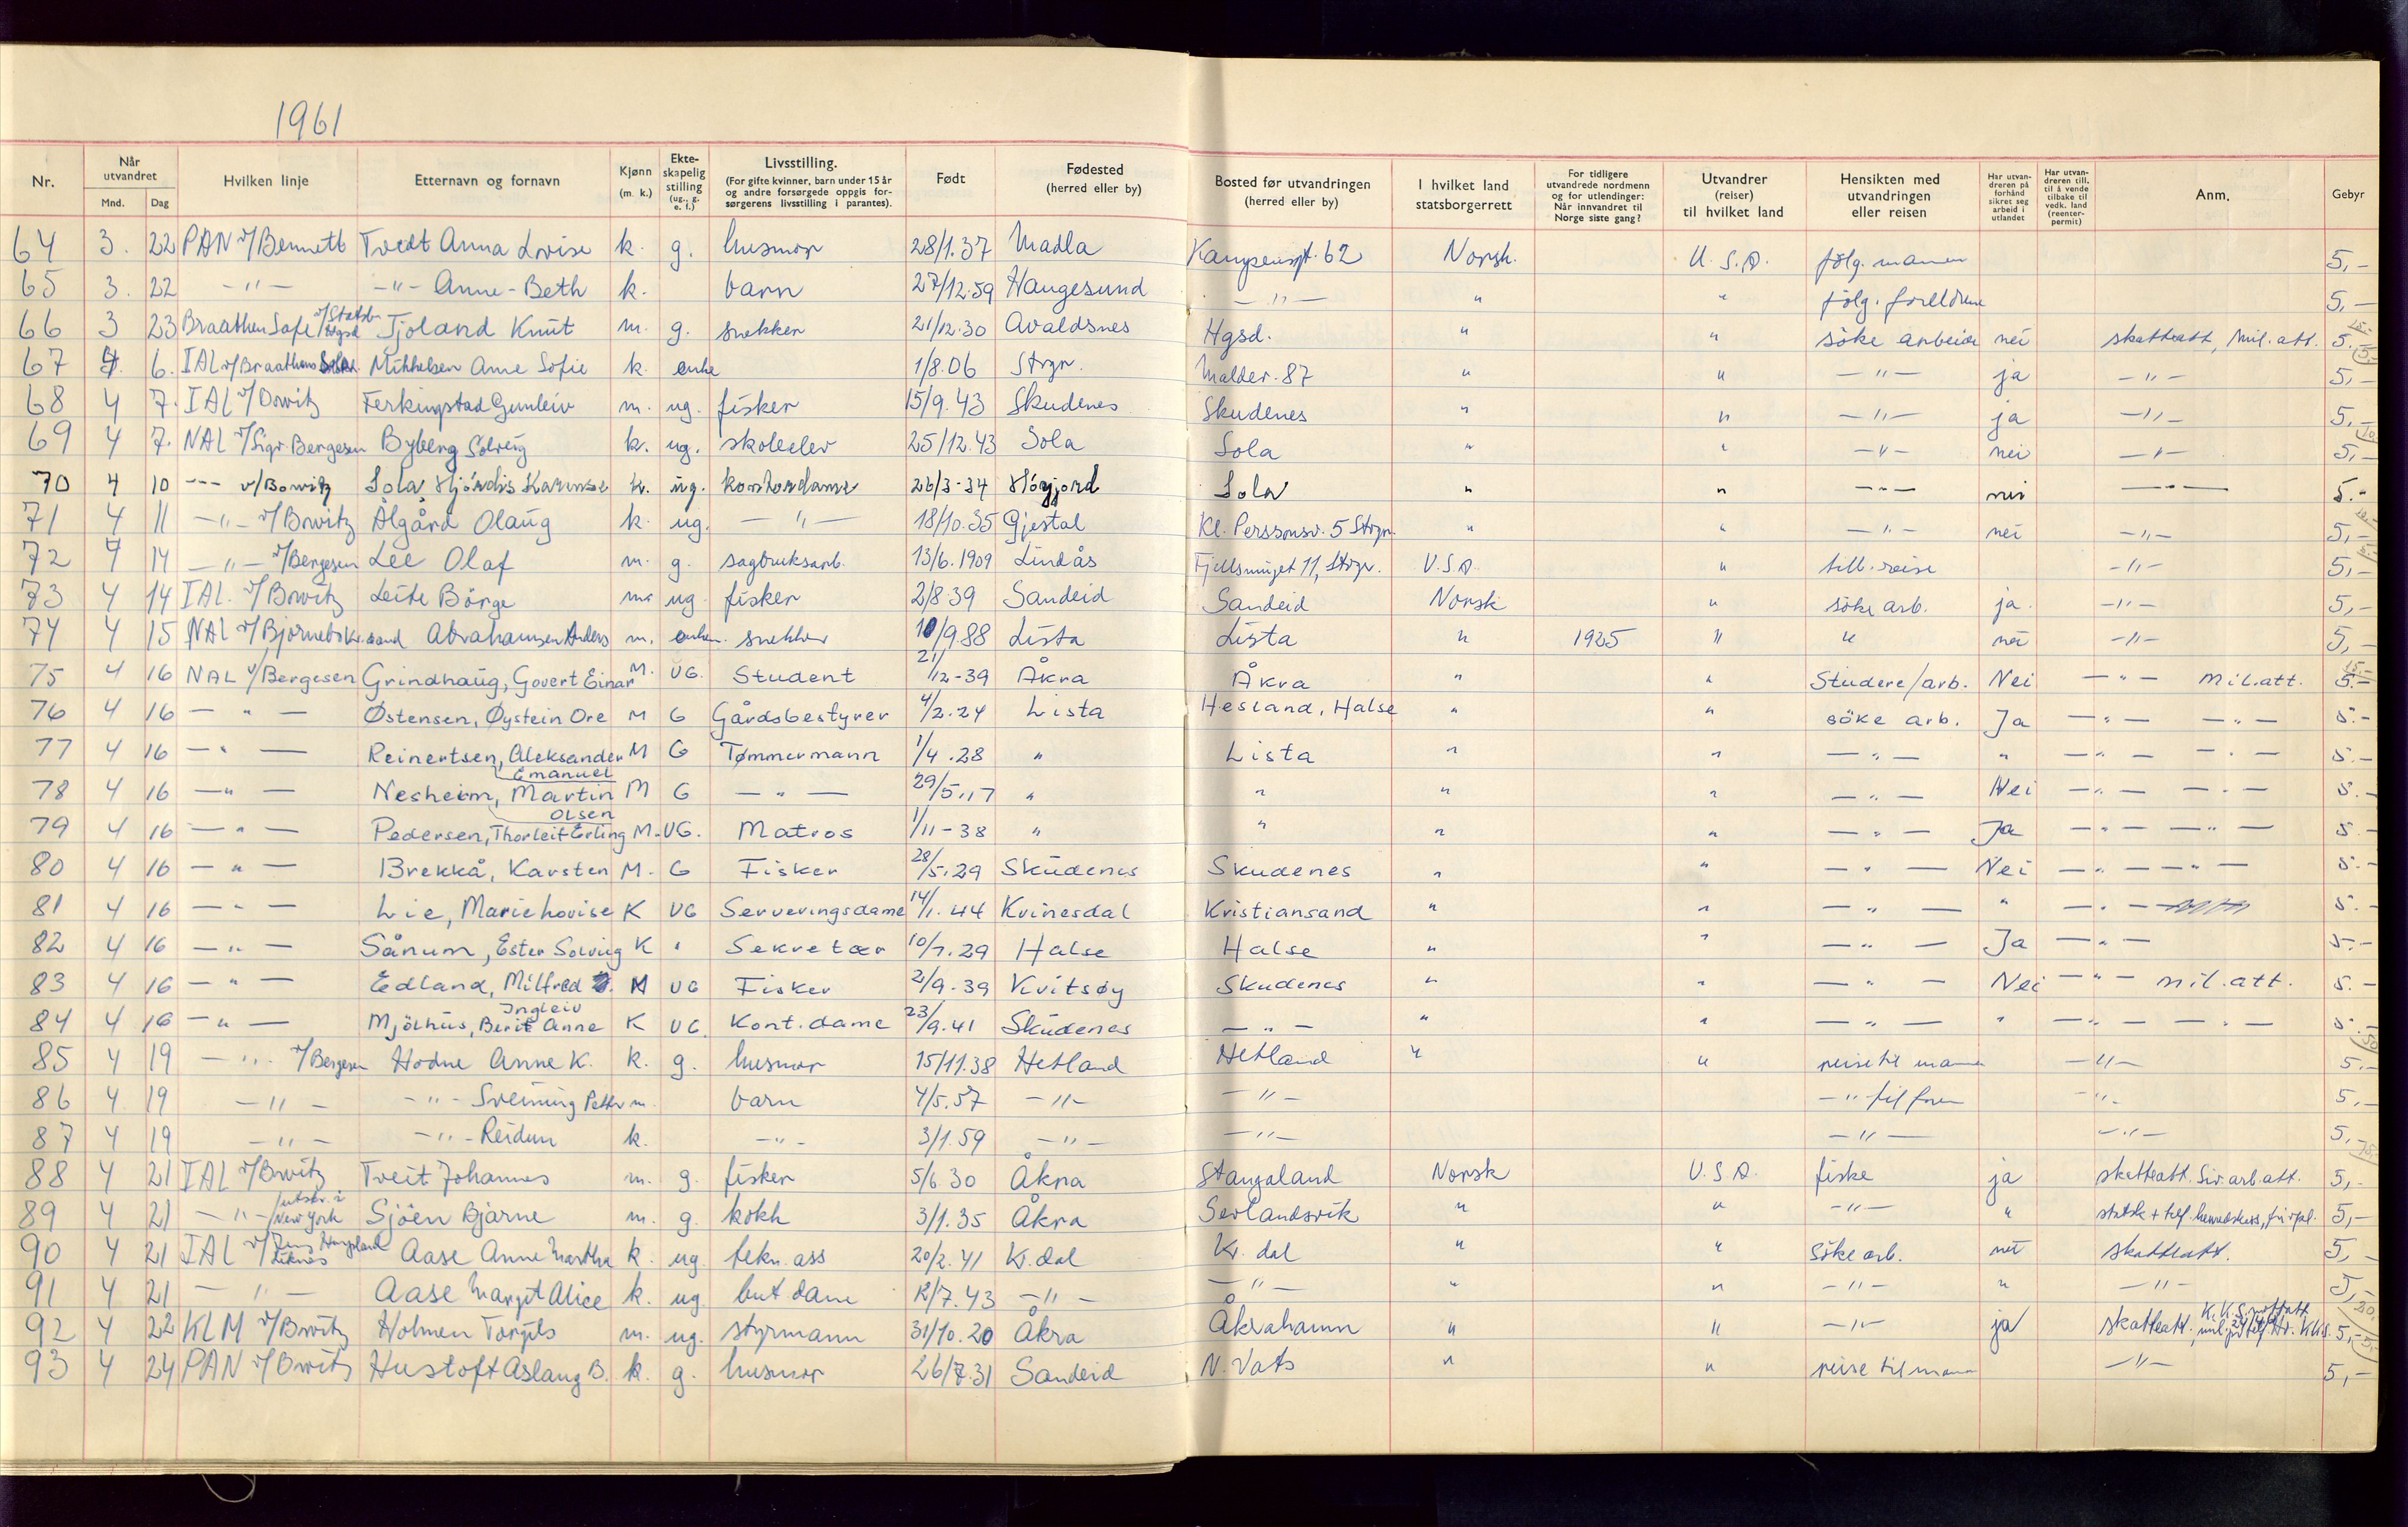 1961
Nr. Når utvandret Mnd. Dag Hvilken linje Etternavn og fornavn Kjønn (m. k.) Ekte-skapelig stilling (ug., g. e. f.) Livsstilling. (For gifte kvinner, barn under 15 år og andre forsørgede oppgis for-sørgerens livsstilling i parantes). Født Fødested (herred eller by) Bosted før utvandringen (herred eller by) I hvilket land statsborgerrett For tidligere utvandrede nordmenn og for utlendinger: Når innvandret til Norge siste gang? Utvandrer (reiser) til hvilket land Hensikten med utvandringen eller reisen Har utvan-dreren på forhånd sikret seg arbeid i utlandet Har utvan-dreren till. til å vende tilbake til vedk. land (reenter-permit) Anm. Gebyr
64 3. 22 PAN v/Bennett Tvedt Anna Lovise k. g. husmor 28/1.37 Madla 62 Norsk. U.S.A. følg. mannen 5,-
65 3. 22 -"- -"- Anne-Beth k. barn 27/12.59 Haugesund -"- " " følg. foreldrene 5,-
66 3 23 Braathen Safe Tjoland Knut m. g. snekker 21/12.30 Avaldsnes Hgsd. " " söke arbeide nei skatteatt, mil. att. 5.-
67 4. 6. IAL v/Braathens Mikkelsen Anne Sofie k. enke 1/8.06 Stvgr. 87 " " -"- ja -"- 5,-
68 4 7. IAL v/Bowitz Ferkingstad Gunleiv m. ug. fisker 15/9.43 Skudenes Skudenes " " -"- ja -"- 5,-
69 4 7. NAL v/Sigv. Bergesen Byberg Solveig k. ug. skoleelev 25/12.43 Sola Sola " " -"- nei -"- 5,-
70 4 10 -"- v/Bowitz Sola Hjördis Karense k. ug. kontordame 26/3-34 Sola " " -"- nei -"- 5.-
71 4 11 -"- v/Bowitz Ålgård Olaug k. ug. -"- 18/10.35 Gjestal Kl. Perssonsv. 5 Stvgr. " " -"- nei -"- 5,-
72 4 14 -"- v/Bergesen Lee Olaf m. g. sagbruksarb. 13/6.1909 Lindås 11, Stvgr. U.S.A. " tilb. reise -"- 5,-
73 4 14 IAL. v/Bowitz Leite Börge m. ug. fisker 2/8 39 Sandeid Sandeid Norsk " söke arb. ja. -"- 5,-
74 4 15 NAL v/Bjørnebo Kr.sand Abrahamsen Anders m. enkem. snekker 10/9.88 Lista Lista " 1925 " " nei -"- 5,-
75 4 16 NAL v/Bergesen Grindhaug, Govert Einar M. UG. Student 21/12-39 Åkra Åkra " " Studere/arb. Nei -"- mil.att. 5.-
76 4 16 -"- Østensen, Øystein Ore M G Gårdsbestyrer 4/2.24 Lista Hesland, Halse " " söke arb. Ja -"- -"- 5.-
77 4 16 -"- Reinertsen, Aleksander Emanuel M G Tømmermann 1/4.28 " Lista " " -"- " -"- -"- 5.-
78 4 16 -"- Nesheim, Martin Olsen M G -"- 29/5.17 " " " " -"- Nei -"- -"- 5.-
79 4 16 -"- Pedersen, Thorleif Erling M. UG. Matros 1/11-38 " " " " -"- Ja -"- -"- 5.-
80 4 16 -"- Brekkå, Karsten M. G Fisker 28/5.29 Skudenes Skudenes " " -"- Nei -"- -"- 5.-
81 4 16 -"- Lie, Marie Lovise K UG Serveringsdame 14/1.44 Kvinesdal Kristiansand " " -"- " -"- 5.-
82 4 16 -"- Sånum, Ester Solveig K " Sekretær 10/7.29 Halse Halse " " -"- Ja -"- 5.-
83 4 16 -"- Edland, Milfred Ingleiv M UG Fisker 2/9.39 Kvitsøy Skudenes " " -"- Nei -"- mil.att. 5.-
84 4 16 -"- Mjölhus, Berit Anne K UG. Kont.dame 23/9.41 Skudenes -"- " " -"- " -"- -"- 5.-
85 4 19 -"- v/Bergesen Hodne Anne K. k. g. husmor 15/11.38 Hetland Hetland " " reise til mannen -"- 5.-
86 4 19 -"- -"- Sveinung Petter m. barn 4/5.57 -"- -"- -"- til faren -"- 5,-
87 4 19 -"- -"- Reidun k. -"- 3/1.59 -"- -"- -"- -"- 5,-
88 4 21 IAL v/Bowitz Tveit Johannes m. g. fisker 5/6.30 Åkra Stangaland Norsk U.S.A. fiske ja skatteatt. Siv. arb. att. 5,-
89 4 21 -"- utstv. i New York Sjöen Bjarne m. g. kokk 3/1.35 Åkra Sevlandsvik " " -"- " 5,-
90 4 21 IAL v/ Aase Anne Martha k. ug. tekn. ass 20/2.41 Kv.dal Kv. dal " " söke arb. nei skatteatt. 5,-
91 4 21 -"- Aase Margit Alice k. ug but dame 12/7.43 -"- -"- " " -"- " -"- 5,-
92 4 22 KLM v/Bowitz Holmen Torgils m. ug. styrmann 31/10.20 Åkra Åkrahamn " " -"- ja skatteatt. 5,-
93 4 24 PAN v/Bowitz Hustoft Aslaug B. k. g. husmor 26/7.31 Sandeid N. Vats " " reise til mann -"- 5,-